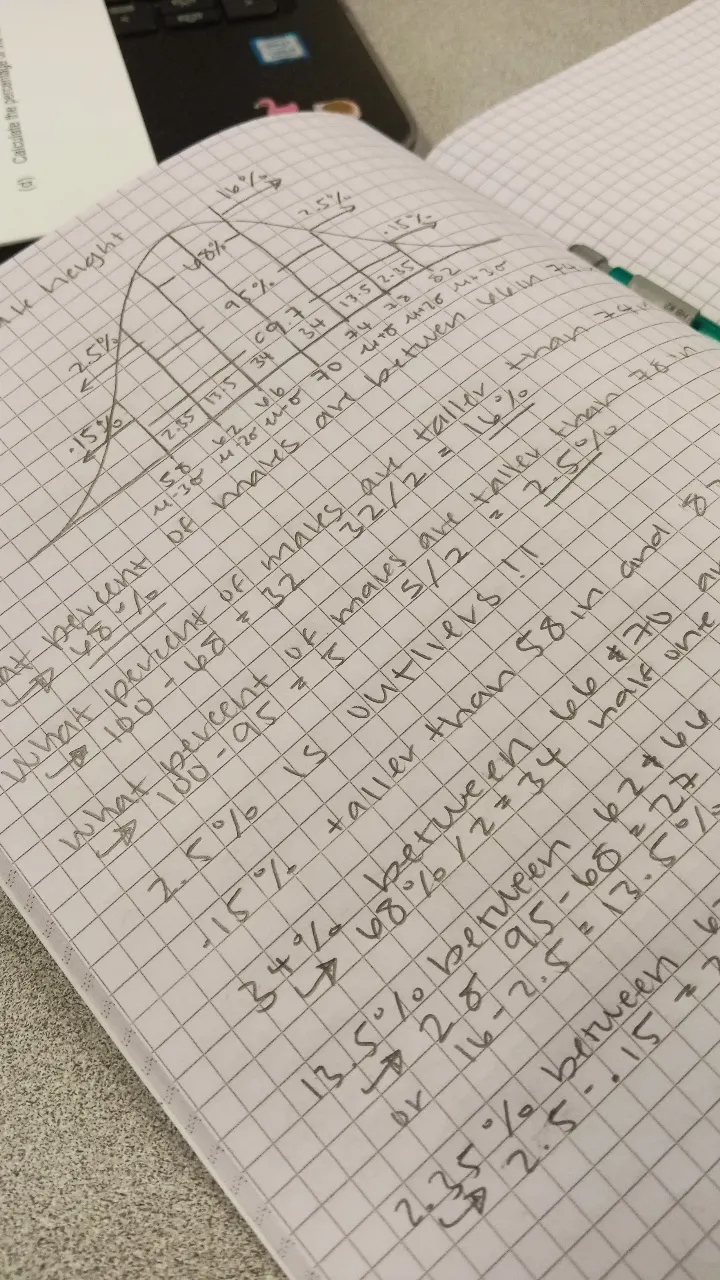 (d) Calculate the percentage of
height
16%
2.5%
.15%
68%
95%
99.7
2.5%
.15%
2.35 13.5 34 34 13.5 2.35
58 62 66 70 74 78 82
μ-3σ μ-2σ μ-σ μ+σ μ+2σ μ-3σ
percent of males are between
→ 68%
What percent of males are taller than 74in
→ 100 - 68 = 32 32/2 = 16%
What percent of males are taller than 78in
→ 100-95 = 5 5/2 = 2.5%
2.5% is outliers!!
.15% taller than 58in and
34% between 66 & 70
→ 68%/2=34 half one
13.5% between 62 + 66
→ 2σ 95-68=27
or 16-2.5=13.5%
2.35% between
→ 2.5-.15 =